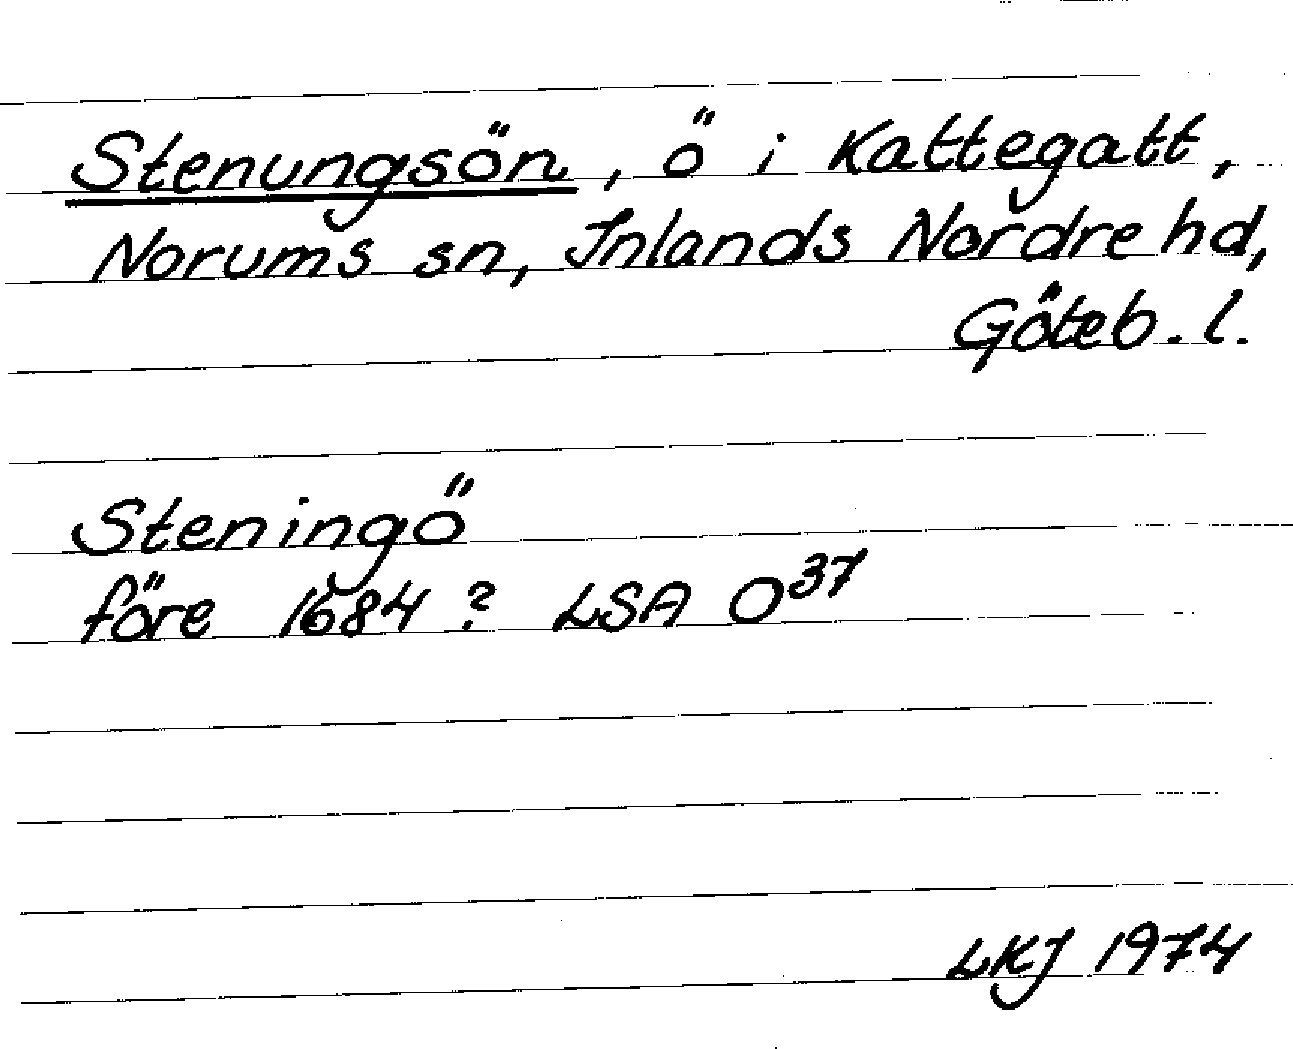 Stenungsön, ö i Kattegatt,
Norums sn, Inlands Nordre hd,
Göteb. l.
Steningö
före 1684 ? LSA O³⁷
LKJ 1974